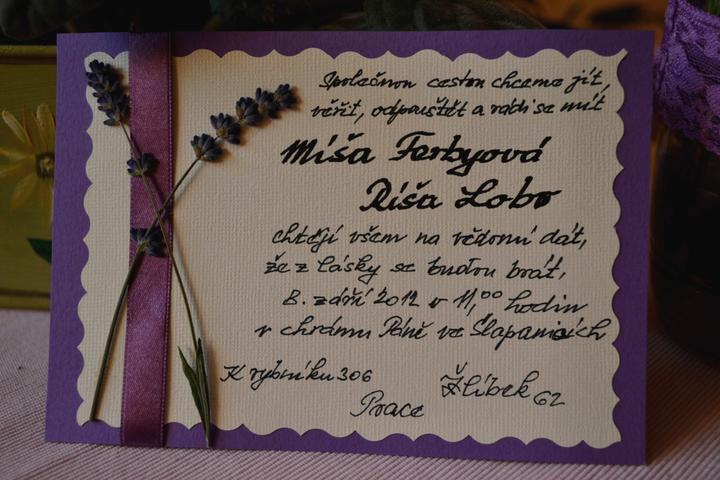 Společnou cestou chceme jít,
věřit, odpouštět a rádi se mít
Míša Ferbyová
Ríša Lobo
chtějí všem na vědomí dát,
že z lásky se budou brát,
8. září 2012 v 11,00 hodin
v chrámu Páně ve Šlapanicích
K rybníku 306
Žlíbek 62
Prace